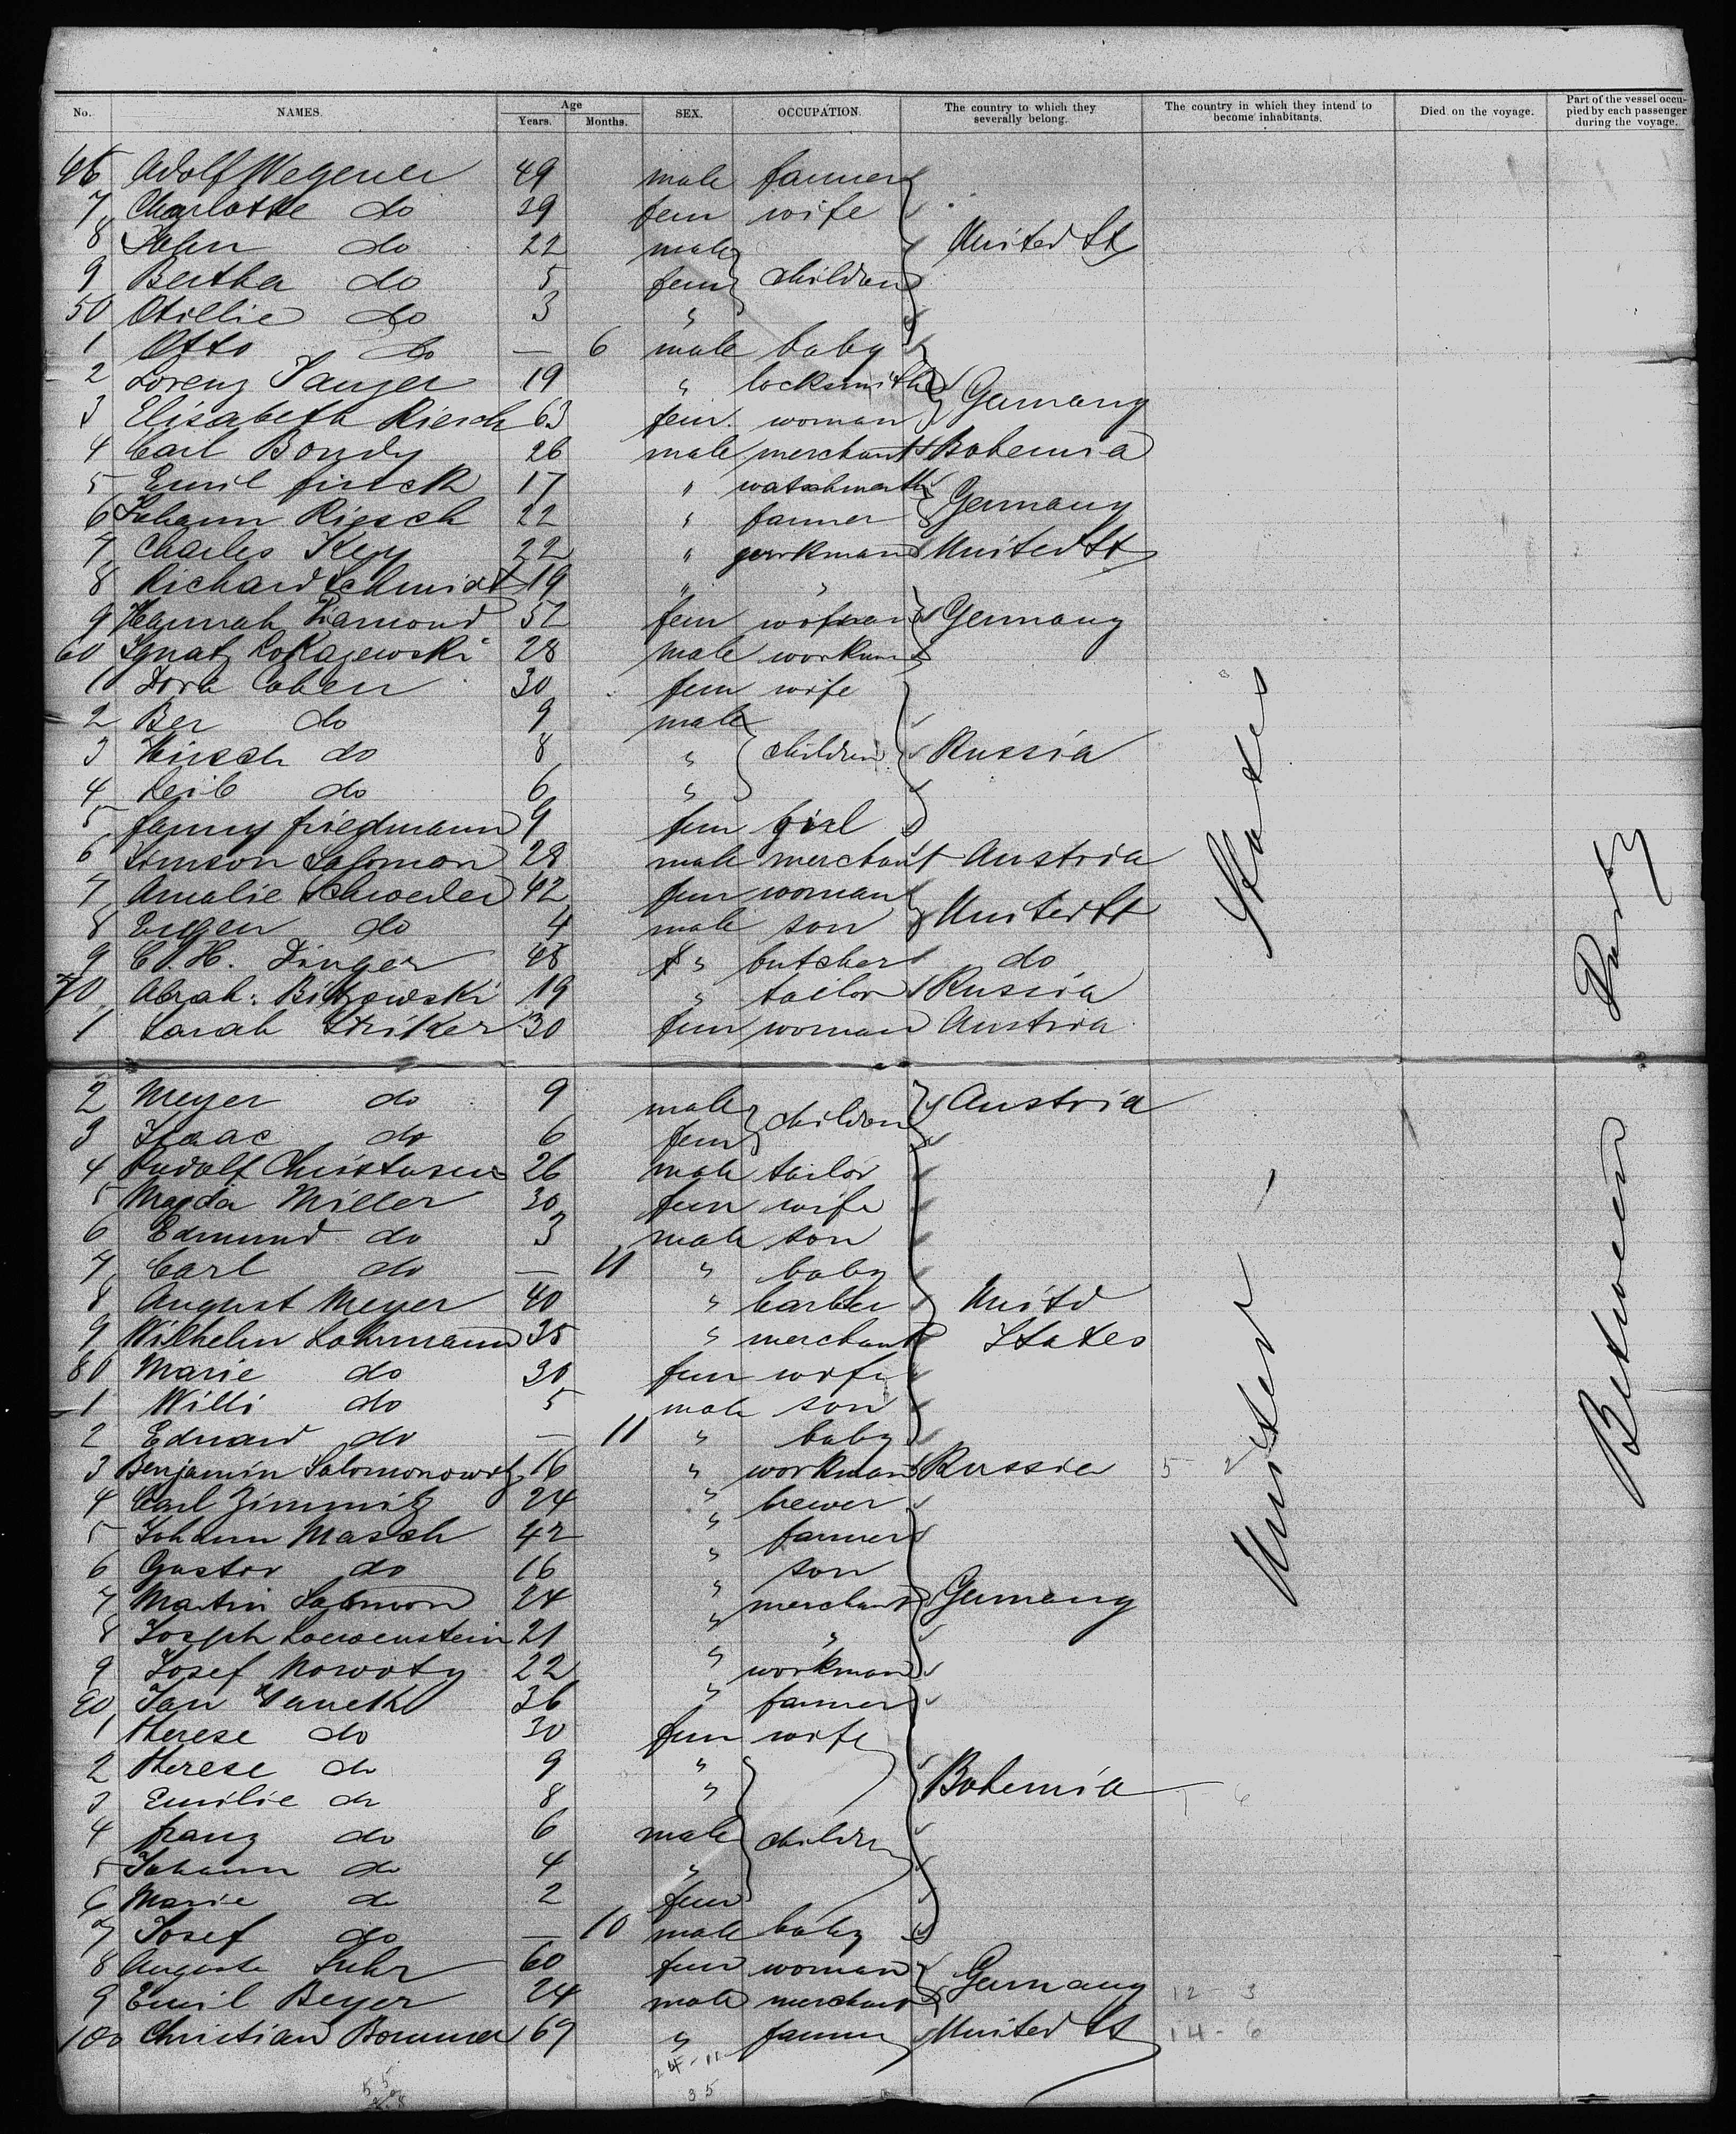 No. NAMES. Age Years. Months. SEX. OCCUPATION. The country to which they severally belong. The country in which they intend to become inhabitants. Died on the voyage. Part of the vessel occupied by each passenger during the voyage.
46 Adolf Wegener 49 male farmer
7 Charlotte do 39 fem wife
8 John do 22 male United St
9 Bertha do 5 fem children
50 Otillie do 3 "
1 Otto do — 6 male baby
2 Lorenz 19 " locksmith Germany
3 Elisabeth Riesch 63 fem. woman
4 Carl Bondy 26 male merchant Bohemia
5 Emil 17 " Germany
6 Johann Riesch 22 " farmer
7 Charles 22 " workman United St
8 Richard Schmidt 19 " "
9 Hannah Diamond 52 fem woman Germany
60 Ignatz 28 male workm
1 Dora Cohen 30 fem wife
2 Ber do 9 male
3 Hirsch do 8 " children Russia
4 Leib do 6 "
5 Fanny Friedmann 9 fem girl
6 Simson Salomon 28 male merchant Austria
7 Amalie 42 fem woman United St
8 Eugen do 4 male son
9 C. H. Dinger 48 " butcher do
70 Abrah. 19 " tailor Russia
1 Sarah Striker 30 fem woman Austria
2 Meyer do 9 male children Austria
3 Isaac do 6 fem
4 Rudolf Christensen 26 male tailor
5 Magda Miller 30 fem wife
6 Edmund do 3 male son
7 Carl do — 11 " baby
8 August Meyer 40 " barber Unitd
9 Wilhelm Lohrmann 35 " merchant States
80 Marie do 30 fem wife
1 Willi do 5 male son
2 Eduard do — 11 " baby
3 Benjamin Salomonowitz 16 " workman Russia 5 2
4 Carl Zimmitz 24 " brewer
5 Johann Masch 42 " farmer
6 Gustav do 16 " son
7 Martin Salomon 24 " merchant Germany
8 Joseph Loewenstein 21 " "
9 Josef Nowoty 22 " workman
90 Jan 36 " farmer
1 Therese do 30 fem wife
2 Therese do 9 "
3 Emilie do 8 " Bohemia 1 - 6
4 Franz do 6 male children
5 Johann do 4 "
6 Marie do 2 fem
7 Josef do — 10 male baby
8 Auguste Suhr 60 fem woman Germany
9 Emil Beyer 24 male merchant 12 - 3
100 Christian 69 " farmer United St 14 - 6
24 - 11
35
55
United States
Between